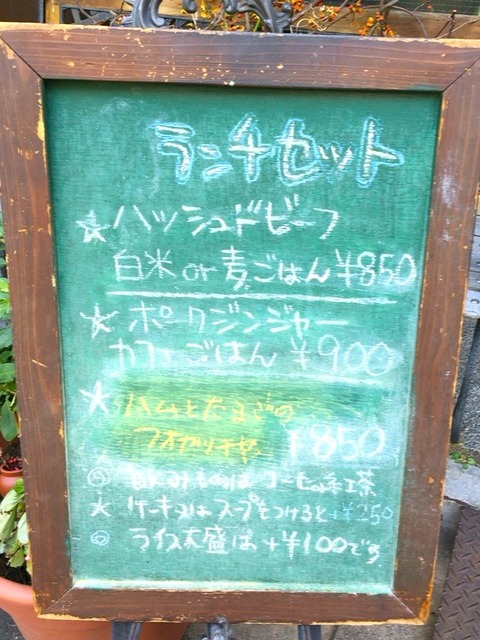 ランチセット
★ハッシュドビーフ
白米or麦ごはん¥850
★ポークジンジャー
カフェごはん ¥900
★ハムとたまごの
¥850
◎ お飲みものは コーヒーor紅茶
★ ケーキ又はスープをつけると+¥250
◎ ライス大盛は+¥100です